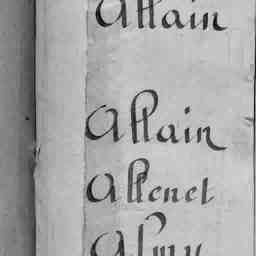 Allain
Allain
Allenet